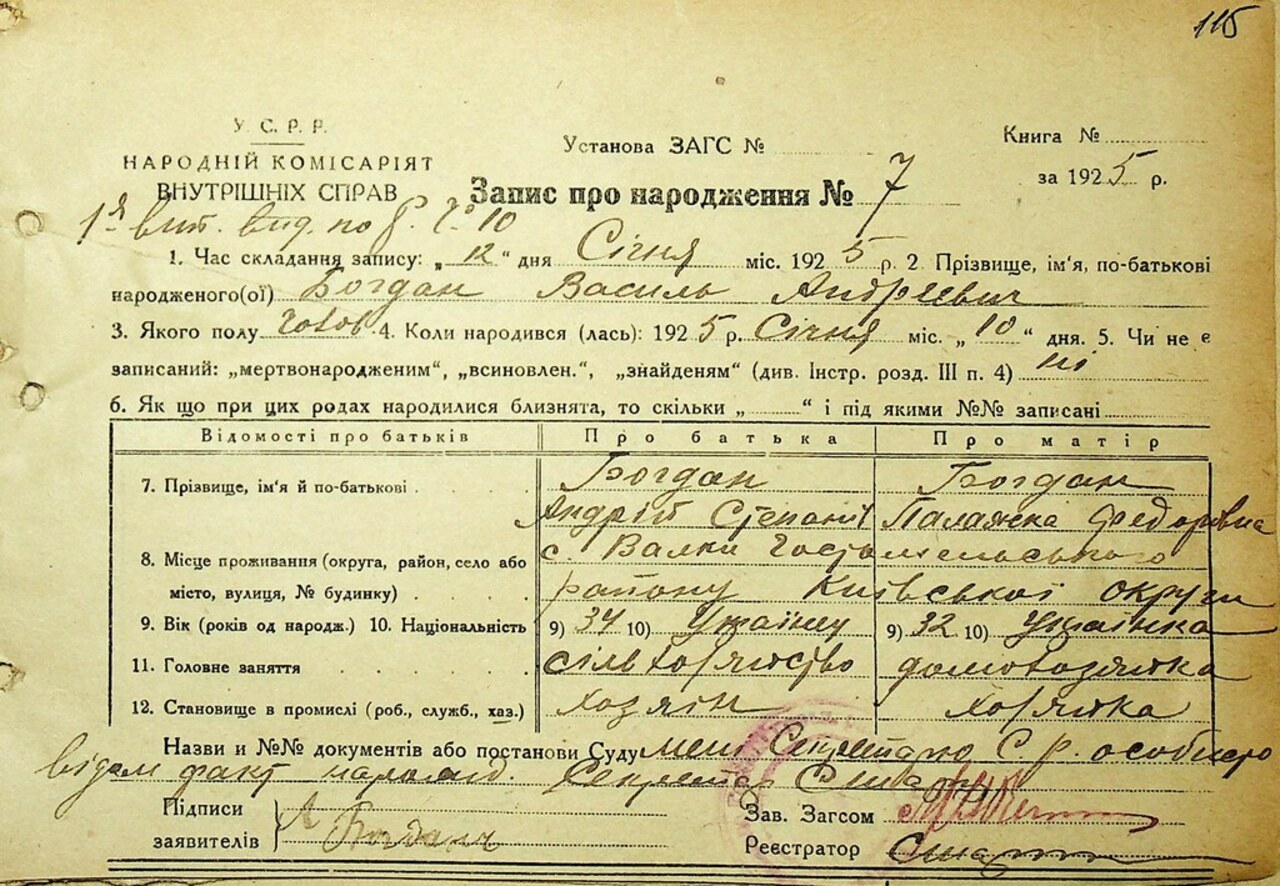 115
У. С. Р. Р.
НАРОДНІЙ КОМІСАРІЯТ
ВНУТРІШНІХ СПРАВ
Установа ЗАГС №
Книга №
за 1925 р.
Запис про народження № 7
вид. по 10
1. Час складання запису: „12“ дня Січня міс. 1925 р. 2 Прізвище, ім'я, по-батькові
народженого(ої) Богдан Василь Андрієвич
3. Якого полу чолов. 4. Коли народився (лась): 1925 р. Січня міс. „10“ дня. 5. Чи не є
записаний: „мертвонародженим“, „всиновлен.“, „знайденям“ (див. Інстр. розд. III п. 4) ні
6. Як що при цих родах народилися близнята, то скільки „ “ і під якими №№ записані
Відомості про батьків Про батька Про матір
7. Прізвище, ім'я й по-батькові Богдан Богдан
Андрій Степанів Палажка Федорівна
8. Місце проживання (округа, район, село або с. Валки Гостомельського
місто, вулиця, № будинку) району Київської округи
9. Вік (років од народж.) 10. Національність 9) 34 10) Українец 9) 32 10) Українка
11. Головне заняття сільхозяйство домохозяйка
12. Становище в промислі (роб., служб., хаз.) хозяін хозяйка
Назви и №№ документів або постанови Суду мені Секретарю С. р. особисто
відом факт народж. Секретар
Підписи
заявителів А Богдан
Зав. Загсом
Реєстратор